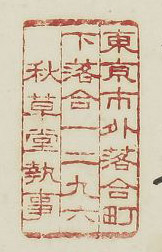 東京市外落合町
下落合一二九六
秋草堂執事